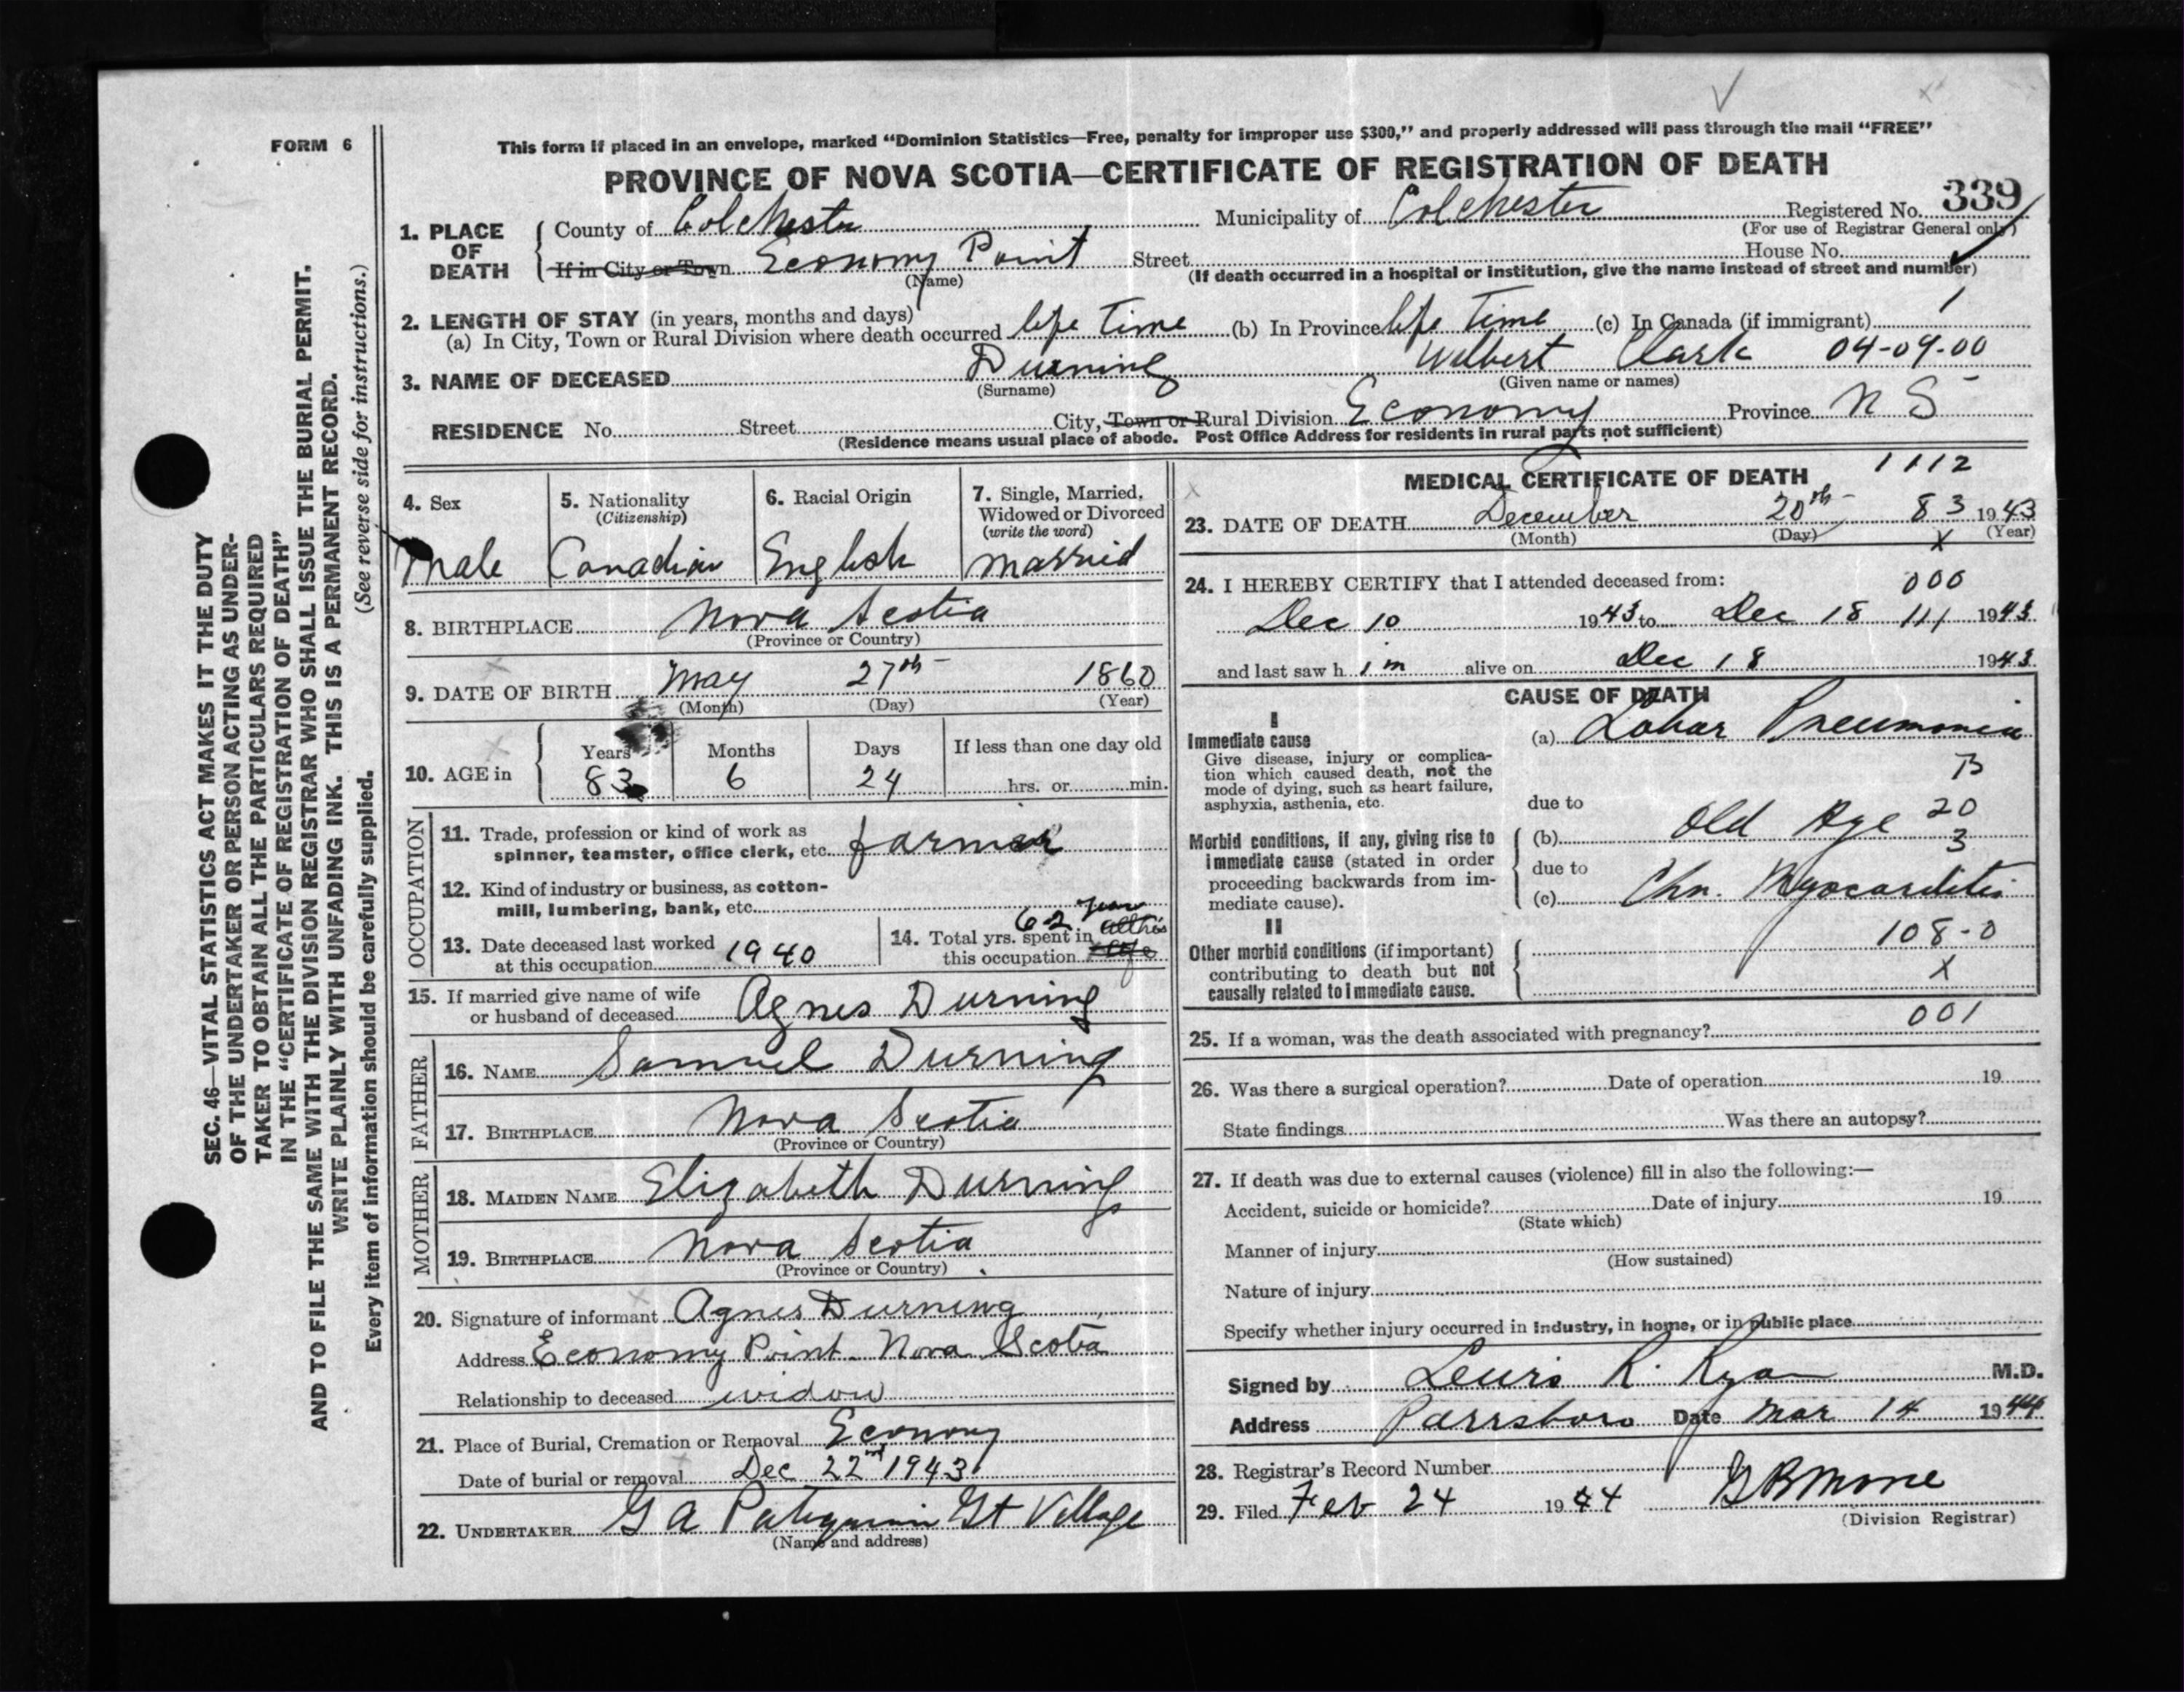 FORM 6
This form if placed in an envelope, marked “Dominion Statistics—Free, penalty for improper use $300,” and properly addressed will pass through the mail “FREE”
PROVINCE OF NOVA SCOTIA—CERTIFICATE OF REGISTRATION OF DEATH
1. PLACE OF DEATH County of Colchester Municipality of Colchester Registered No. 339
(For use of Registrar General only)
If in City or Town Economy Point Street House No.
(Name) (If death occurred in a hospital or institution, give the name instead of street and number)
2. LENGTH OF STAY (in years, months and days)
(a) In City, Town or Rural Division where death occurred life time (b) In Province life time (c) In Canada (if immigrant) 1
3. NAME OF DECEASED Durning Wilbert Clark 04-09-00
(Surname) (Given name or names)
RESIDENCE No. Street City, Town or Rural Division Economy Province N S
(Residence means usual place of abode. Post Office Address for residents in rural parts not sufficient)
4. Sex
Male
5. Nationality
(Citizenship)
Canadian
6. Racial Origin
English
7. Single, Married, Widowed or Divorced
(write the word)
Married
8. BIRTHPLACE Nova Scotia
(Province or Country)
9. DATE OF BIRTH May 27th 1860
(Month) (Day) (Year)
10. AGE in Years Months Days If less than one day old
83 6 24 hrs. or min.
OCCUPATION
11. Trade, profession or kind of work as
spinner, teamster, office clerk, etc. farmer
12. Kind of industry or business, as cotton-
mill, lumbering, bank, etc.
13. Date deceased last worked
at this occupation 1940
14. Total yrs. spent in 62 years
this occupation
15. If married give name of wife
or husband of deceased Agnes Durning
FATHER
16. NAME Samuel Durning
17. BIRTHPLACE Nova Scotia
(Province or Country)
MOTHER
18. MAIDEN NAME Elizabeth Durning
19. BIRTHPLACE Nova Scotia
(Province or Country)
20. Signature of informant Agnes Durning
Address Economy Point Nova Scotia
Relationship to deceased widow
21. Place of Burial, Cremation or Removal Economy
Date of burial or removal Dec 22nd 1943
22. UNDERTAKER G A Gt Village
(Name and address)
MEDICAL CERTIFICATE OF DEATH 1112
23. DATE OF DEATH December 20th 83 1943
(Month) (Day) (Year)
X
24. I HEREBY CERTIFY that I attended deceased from: 000
Dec 10 1943 to Dec 18 111 1943
and last saw h im alive on Dec 18 1943
CAUSE OF DEATH
I
Immediate cause
Give disease, injury or complica-
tion which caused death, not the
mode of dying, such as heart failure,
asphyxia, asthenia, etc.
(a) Lobar Pneumonia
due to
Morbid conditions, if any, giving rise to
immediate cause (stated in order
proceeding backwards from im-
mediate cause).
(b) Old Age 20
3
due to
(c) Chr. Myocarditis
II
Other morbid conditions (if important)
contributing to death but not
causally related to immediate cause.
108-0
X
25. If a woman, was the death associated with pregnancy? 001
26. Was there a surgical operation? Date of operation 19
State findings Was there an autopsy?
27. If death was due to external causes (violence) fill in also the following:—
Accident, suicide or homicide? Date of injury 19
(State which)
Manner of injury
(How sustained)
Nature of injury
Specify whether injury occurred in industry, in home, or in public place
Signed by Lewis R. Ryan M.D.
Address Parrsboro Date Mar 14 1944
28. Registrar’s Record Number
29. Filed Feb 24 1944 G B More
(Division Registrar)
SEC. 46—VITAL STATISTICS ACT MAKES IT THE DUTY
OF THE UNDERTAKER OR PERSON ACTING AS UNDER-
TAKER TO OBTAIN ALL THE PARTICULARS REQUIRED
IN THE “CERTIFICATE OF REGISTRATION OF DEATH”
AND TO FILE THE SAME WITH THE DIVISION REGISTRAR WHO SHALL ISSUE THE BURIAL PERMIT.
WRITE PLAINLY WITH UNFADING INK. THIS IS A PERMANENT RECORD.
Every item of information should be carefully supplied. (See reverse side for instructions.)